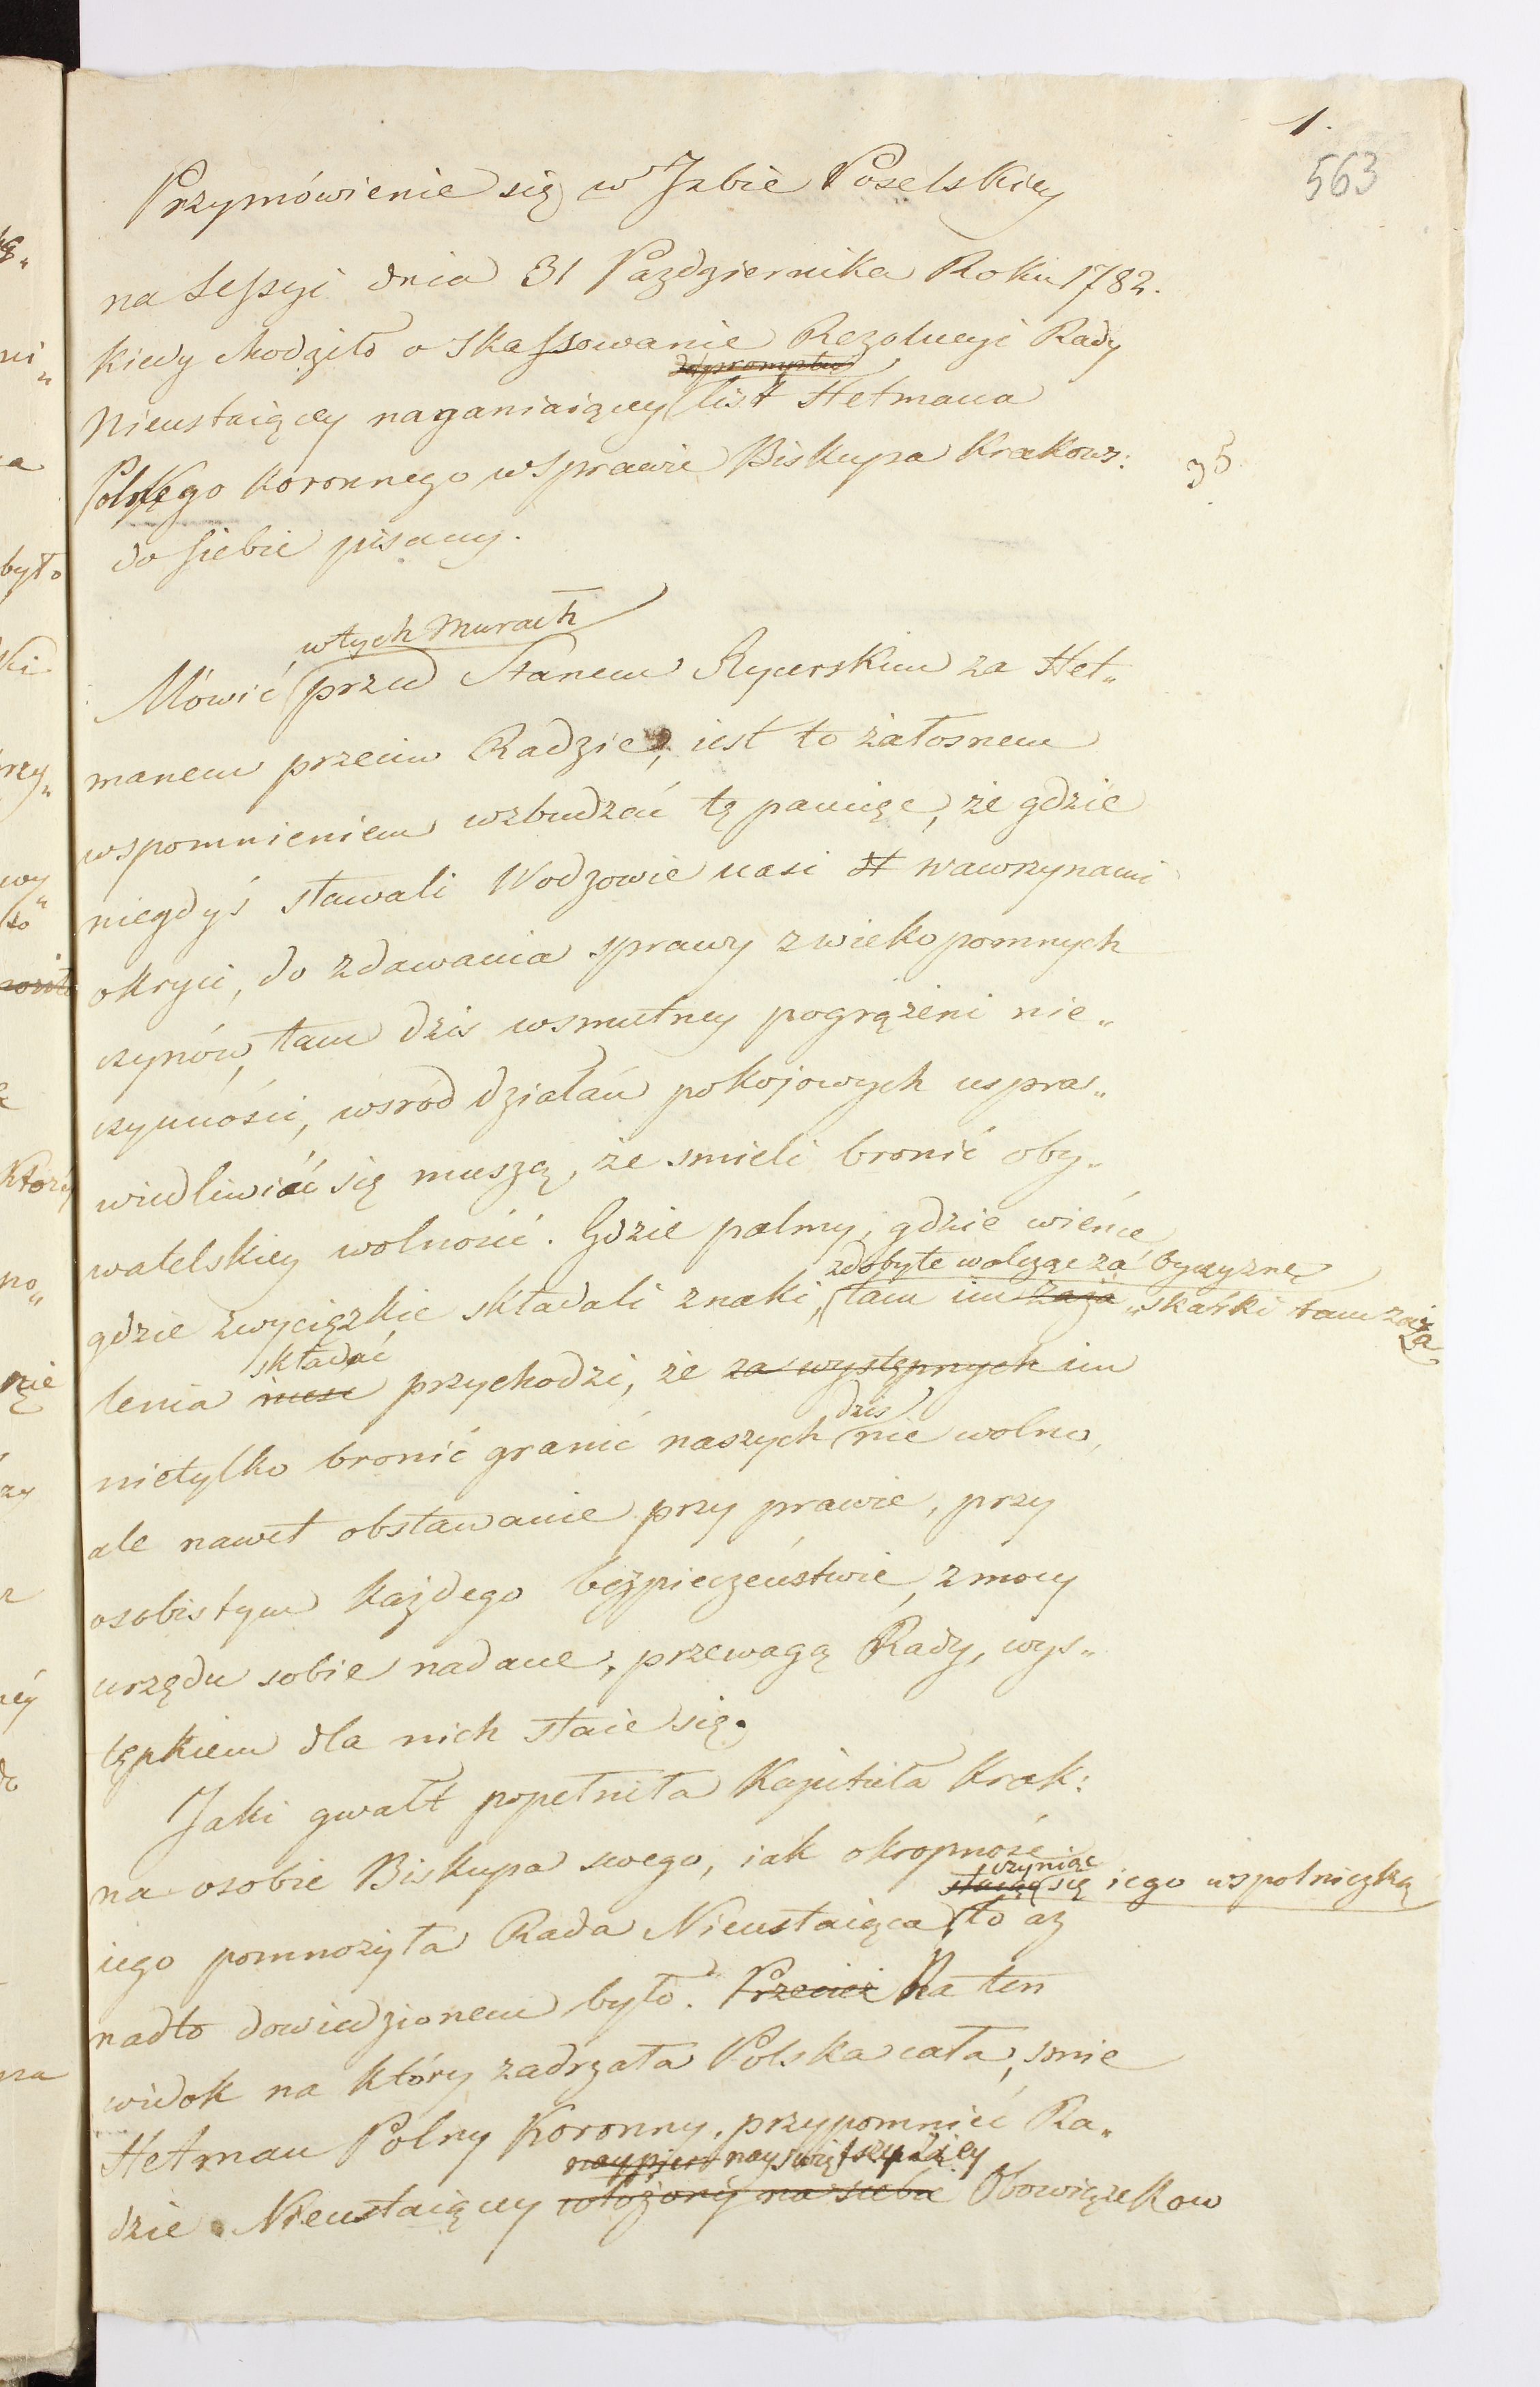 1.
563
Przymówienie się w Izbie Poselskiey
na Sessyi dnia 31 Pazdziernika Roku 1782.
kiedy chodziło o skassowanie Rezolucyi Rady
Nieustaiącey naganiaiącey list Hetmana
Polnego Koronnego w sprawie Biskupa Krakows:
35
do siebie pisany.
w tych murach
Mówić przed Stanem Rycerskim za Het„
manem przeciw Radzie, iest to żałosnem
wspomnieniem wzbudzać tę pamięć, że gdzie
niegdyś stawali Wodzowie nasi st wawrzynami
okryci, do zdawania sprawy z wiekopomnych
czynów, tam dzis w smutney pogrążeni nie„
czynności, wśród działań pokojowych uspra„
wiedliwiać się muszą, że smieli bronić oby„
watelskiey wolności. Gdzie palmy, gdzie wieńce
zdobyte walcząc za Oyczyznę
gdzie zwycięzkie składali znaki, tam im zaża „skarki tam zaża
składać
lenia niesc przychodzi, że za występnych im
dzis
nietylko bronić granic naszych nie wolno,
ale nawet obstawanie przy prawie, przy
osobistym każdego bezpieczeństwie, z mocy
urzędu sobie nadane, przewagą Rady, wys„
tępkiem dla nich staie się.
Jaki gwałt popełniła Kapituła Krak:
na osobie Biskupa swego, iak okropność
czyniąc
staiąc się iego uspolniczką
iego pomnożyła Rada Nieustaiąca, to aż
nadto dowiedzionem było. Przecież Na ten
widok na który zadrżała Polska cała, smie
Hetman Polny Koronny, przypomnieć Ra„
nayswiętszy
dzie Nieustaiącey włożony na siebie Obowiązekow